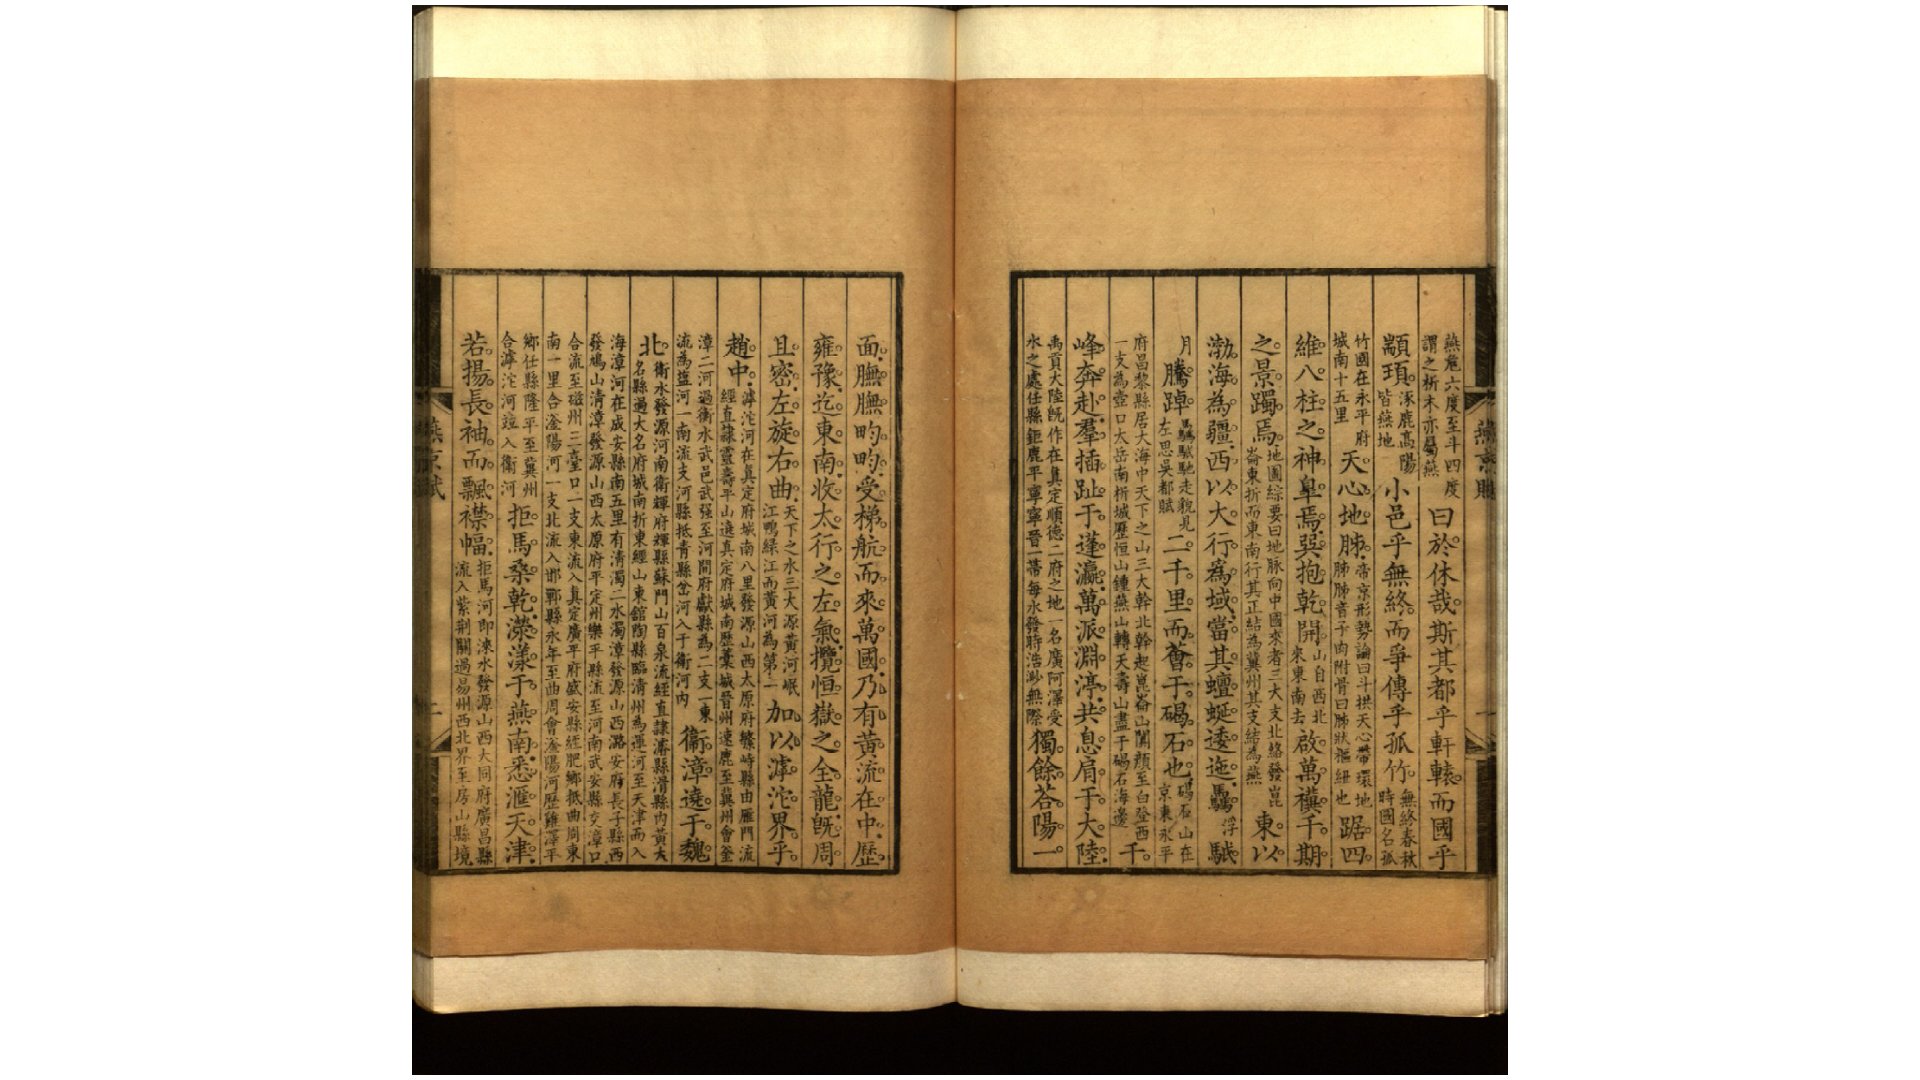 燕危六度至斗四度謂之析木亦屬燕曰於休哉斯其都乎軒轅而國乎
顓頊涿鹿高陽皆燕地小邑乎無終而爭傳乎孤竹無終春秋時國名孤
竹國在永平府城南十五里天心地肺帝京形勢論曰斗拱天心帶環地肺肺音子肉附骨曰肺狀樞紐也踞四
維八柱之神臯焉巽抱乾開山自西北來東南去啟萬禩千期
之景躅焉地圖綜要曰地脉向中國來者三大支北絡發崑崙東折而東南行其正結為冀州其支結為燕東以
渤海為疆西以大行為域當其蟺蜒逶迤驫浮駥
月騰踔驫駥馳走貌見左思吳都賦二千里而薈于碣石也碣石山在京東永平
府昌黎縣居大海中天下之山三大幹北幹起崑崙山闐顏至白登西一支為壺口大岳南析城歷恒山鍾燕山轉天壽山盡于碣石海邊千
峰奔赴羣插趾于蓬瀛萬派淵渟共息肩于大陸
禹貢大陸既作在真定順德二府之地一名廣阿澤受水之處任縣鉅鹿平寧寧晉一帶每水發時浩渺無際獨餘荅陽一
燕京賦
一
面膴膴畇畇受梯航而來萬國乃有黃流在中歷
雍豫迄東南收太行之左氣攬恒嶽之全龍旣周
且密左旋右曲天下之水三大源黃河岷江鴨綠江而黃河為第一加以滹沱界乎
趙中滹沱河在真定府城南八里發源山西太原府繁峙縣由雁門流經直隷靈壽平山遶真定府城南歷藁城晉州速鹿至冀州會釜
漳二河過衡水武邑武强至河間府獻縣為二支一東流為鹽河一南流支河縣抵青縣岔河入于衛河內衞漳遶于魏
北衛水發源河南衛輝府輝縣蘇門山百泉流經直隷濬縣滑縣內黃大名縣過大名府城南折東經山東舘陶縣臨清州為運河至天津而入
海漳河在咸安縣南五里有淸濁二水濁漳發源山西潞安府長子縣西發鳩山淸漳發源山西太原府平定州樂平縣流至河南武安縣交漳口
合流至磁州三臺口一支東流入真定廣平府咸安縣經肥鄉抵曲周東南一里合滏陽河一支北流入邯鄲縣永年至曲周會滏陽河歷雞澤平
鄉任縣隆平至冀州合滹沱河竝入衛河拒馬桑乾濴漾于燕南悉滙天津
若揚長袖而飄襟幅拒馬河即淶水發源山西大同府廣昌縣流入紫荆關過易州西北界至房山縣境
燕京賦
二